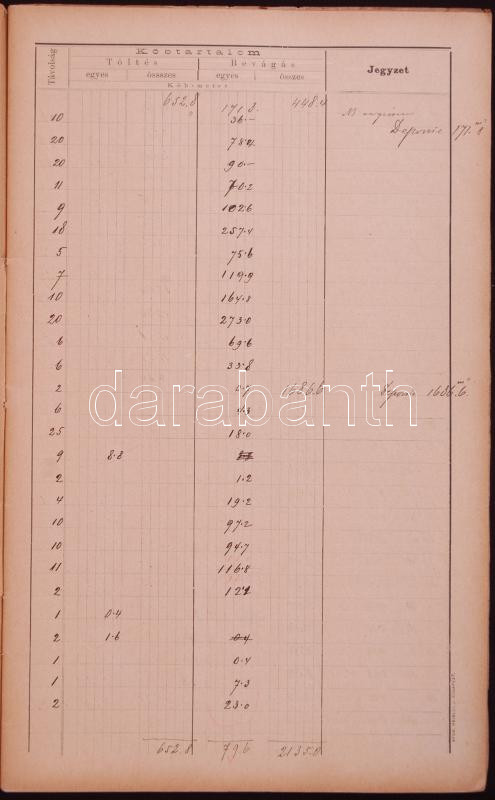 Távolság Köbtartalom Jegyzet
Töltés Bevágás
egyes összses egyes összes
Köbmeter
652.8 171.8 448.4
10 36.—
Deponie 171.8
20 78.2
20 90.—
11 70.2
9 102.6
18 257.4
5 75.6
7 119.9
10 164.8
20 273.0
6 69.6
6 33.8
2 1686.6 Deponie 1686.6
6 4.3
25 18.0
9 8.8
2 1.2
4 19.2
10 97.2
10 94.7
11 116.8
2 122
1 0.4
2 1.6 0.4
1 0.4
1 7.3
2 23.0
652.8 79.6 2135.0
darabanth